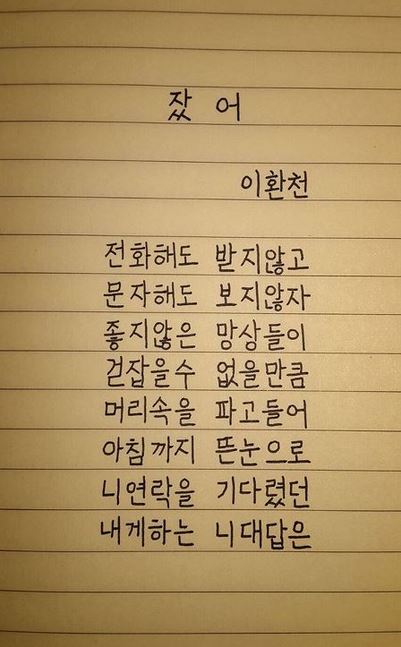 잤어
이환천
전화해도 받지않고
문자해도 보지않자
좋지않은 망상들이
걷잡을수 없을만큼
머리속을 파고들어
아침까지 뜬눈으로
니연락을 기다렸던
내게하는 니대답은